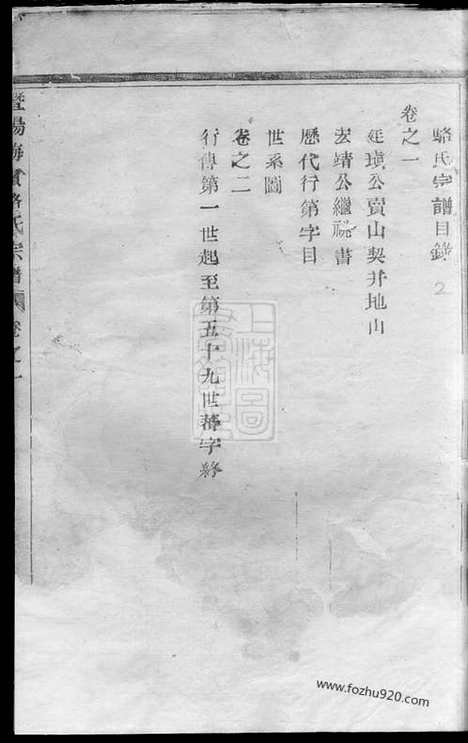 駱氏宗譜目錄
2
卷之一
廷璸公賣山契并地山
宏靖公繼祧書
歷代行第字目
世系圖
卷之二
行傳第一世起至第五十九世蕣字終
暨陽海賓駱氏宗譜
卷之一
上海圖
www.fozhu920.com